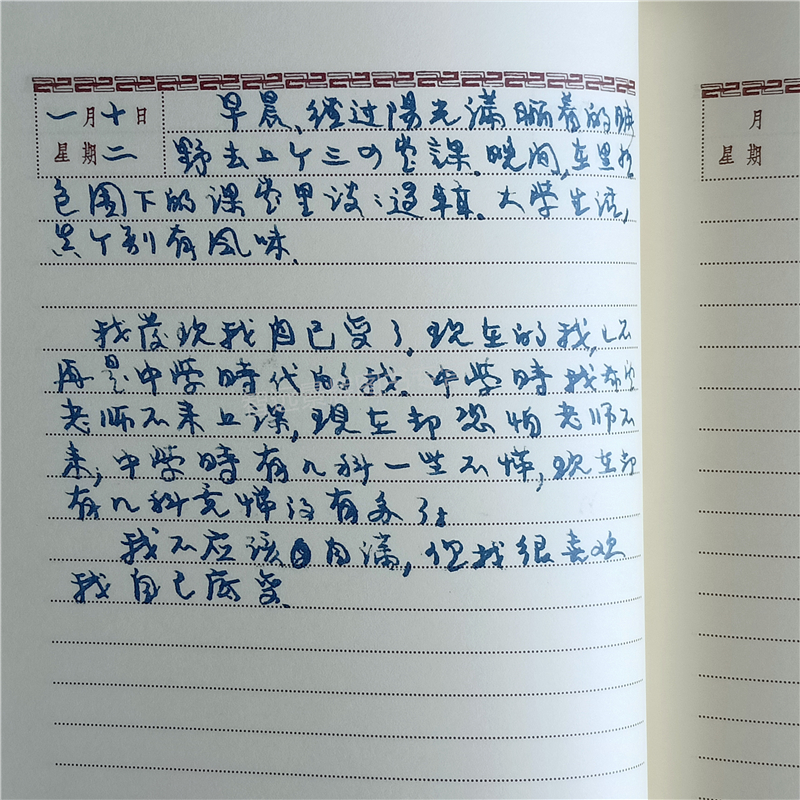 一月十日 早晨,经过陽光满晒着的
星期二 野去上个三四堂課.晚间,在黑
色围下的课堂里谈谈過.大学生活,
里个别有风味.
我发现我自己变了,现在的我,已不
再是中学時代的我.中学時我希望
老师不来上課,现在却恐怕老师不
来,中学時有几科一些不懂,现在却
有几科竟懂没有多了.
我不应该自满,但我很喜欢
我自己底变.
月
星期